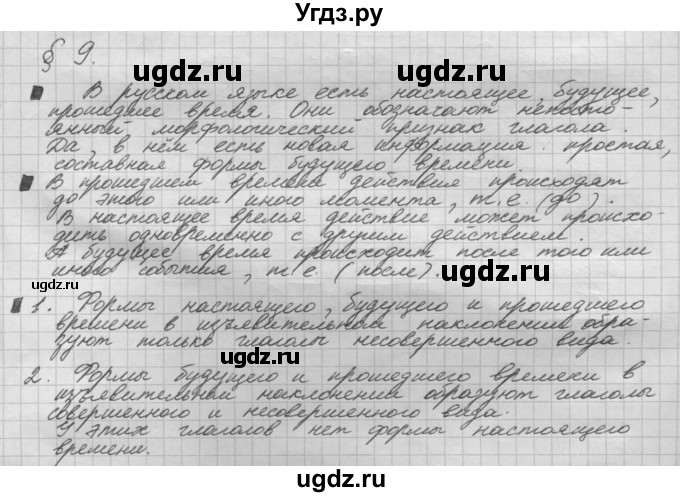 Угдз.ру
§ 9.
В русском языке есть настоящее, будущее,
прошедшее время. Они обозначают непосто-
янный морфологический признак глагола.
Да, в нём есть новая информация: простая,
составная формы будущего времени.
В прошедшем времени действия происходят
до этого или иного момента, т.е. (до).
В настоящее время действие может происхо-
дить одновременно с другим действием.
А будущее время происходит после того или
иного события, т.е. (после).
1. Формы настоящего, будущего и прошедшего
времени в изъявительном наклонении обра-
зуют только глаголы несовершенного вида.
2. Формы будущего и прошедшего времени в
изъявительный наклонения образуют глаголы
совершенного и несовершенного вида.
У этих глаголов нет формы настоящего
времени.
ugdz.ru
ugdz.ru
ugdz.ru
ugdz.ru
ugdz.ru
ugdz.ru
ugdz.ru
ugdz.ru